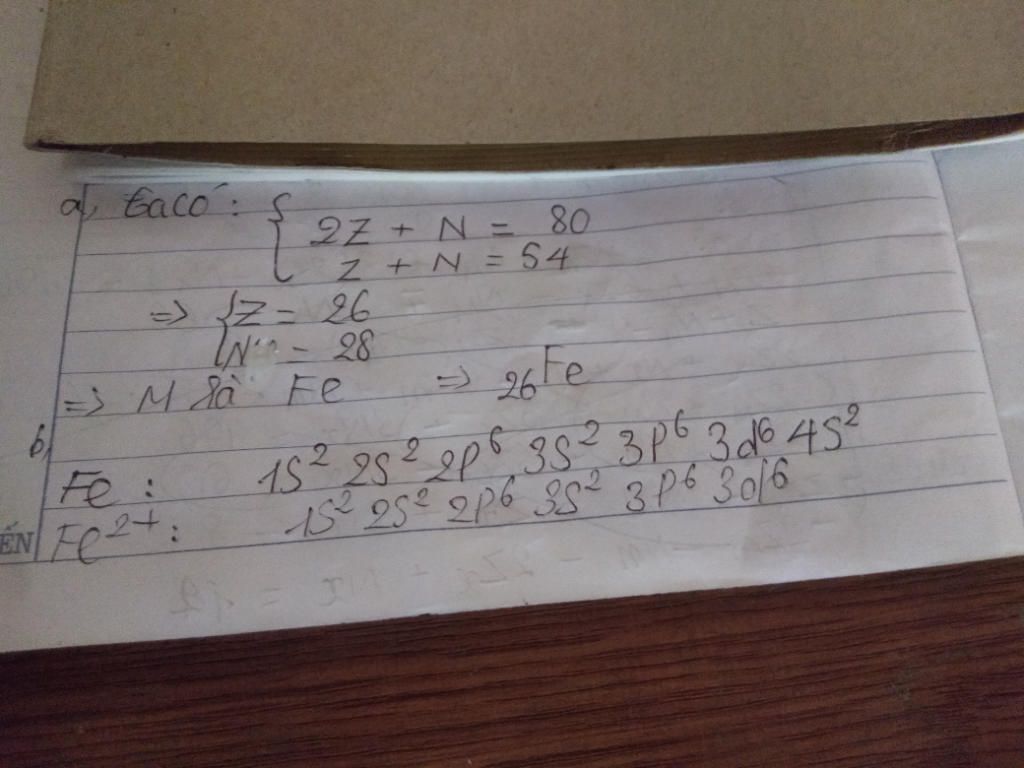 a, taco:
{ 2Z + N = 80
Z + N = 54
=> { Z = 26
N = 28
=> M là Fe => ₂₆Fe
b,
Fe : 1S² 2S² 2P⁶ 3S² 3P⁶ 3d⁶ 4S²
Fe²⁺ : 1S² 2S² 2P⁶ 3S² 3P⁶ 3d⁶
ẾN